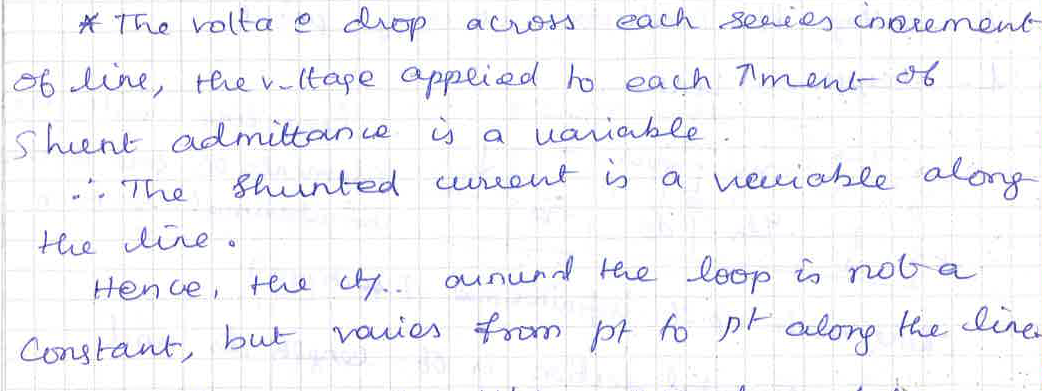 * The volta e drop across each series increment
of line, the v-ltage applied to each ment of
shunt admittance is a variable.
∴ The shunted current is a variable along
the line.
Hence, the around the loop is not a
Constant, but varies from pt to pt along the line